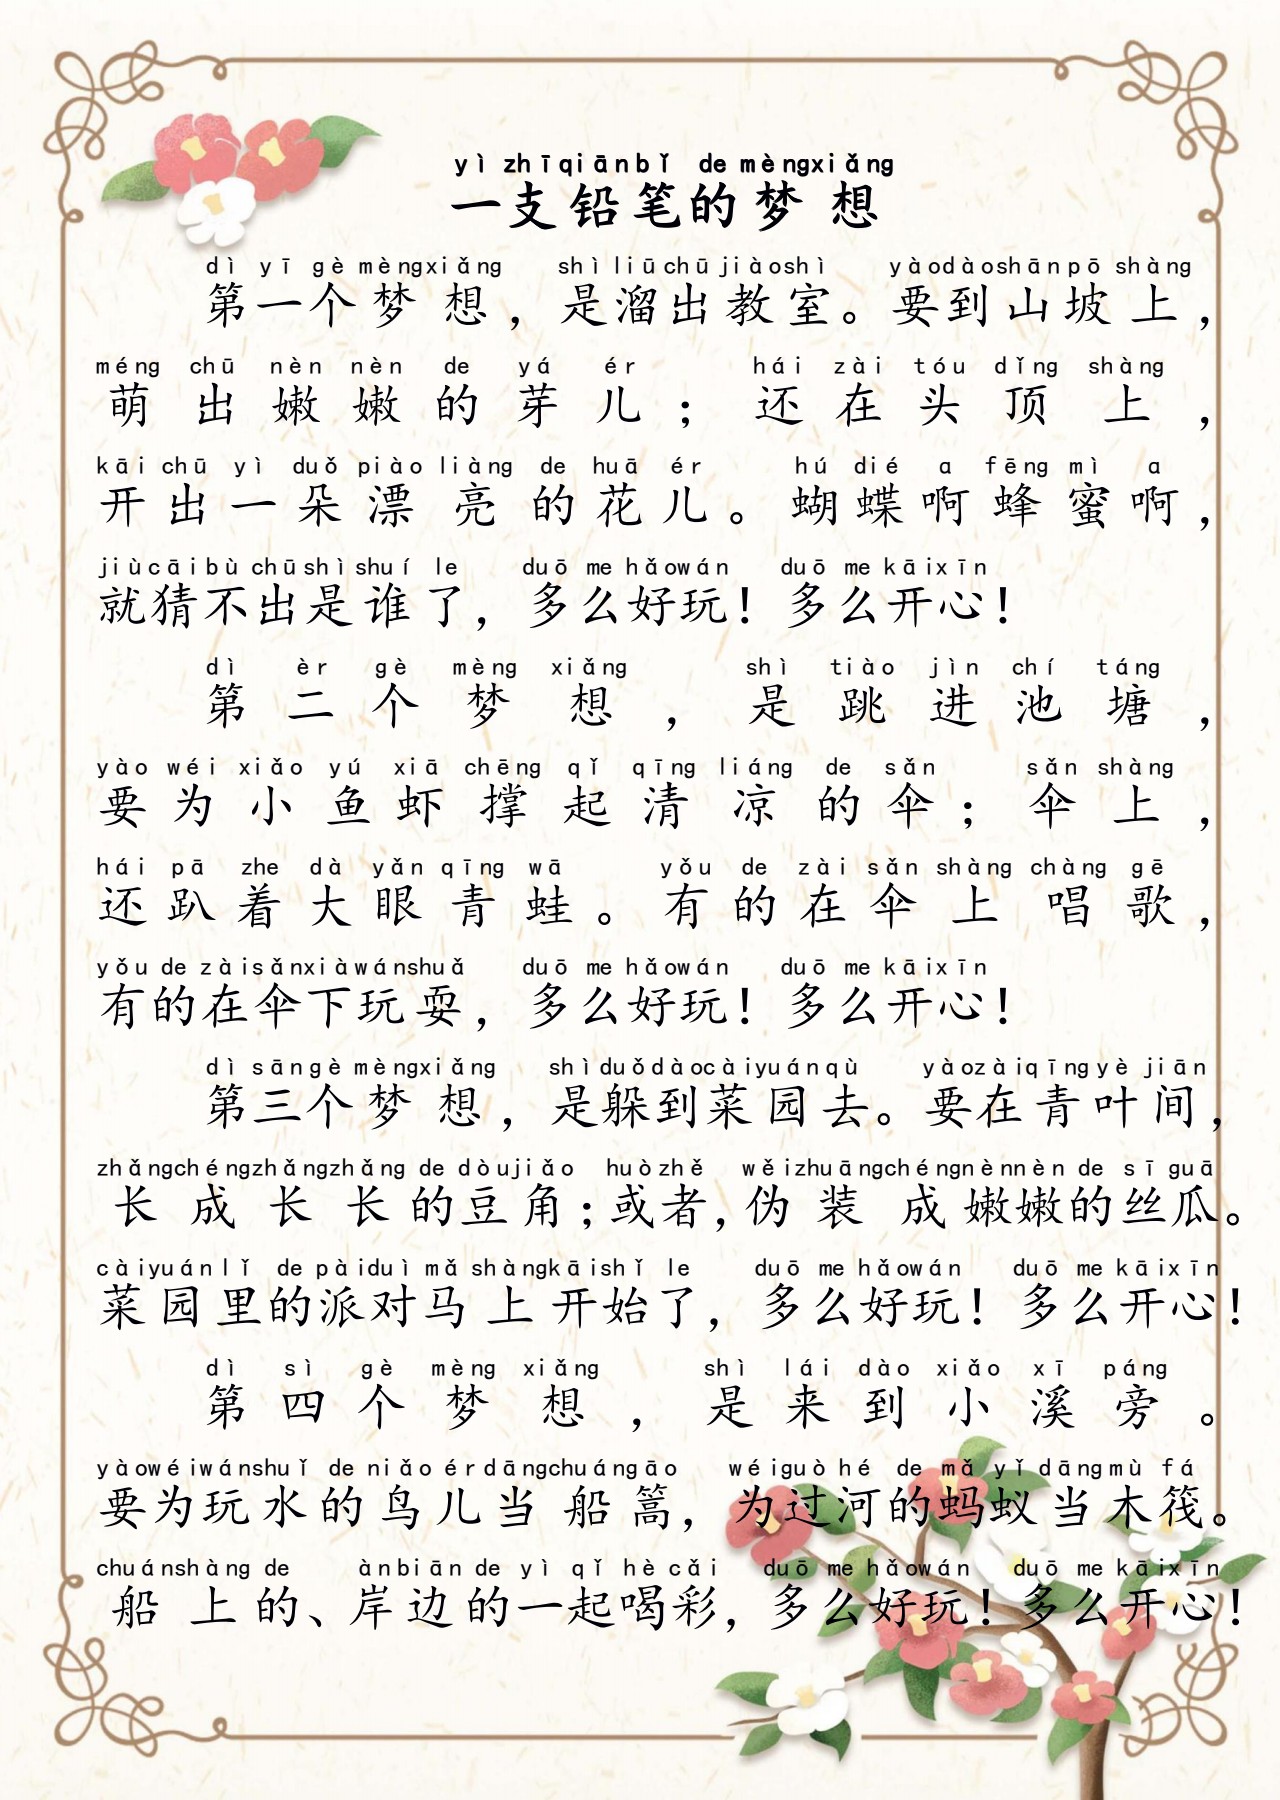 yì zhī qiān bǐ de mèng xiǎng
一支铅笔的梦想
dì yī gè mèng xiǎng shì liū chū jiào shì yào dào shān pō shàng
第一个梦想，是溜出教室。要到山坡上，
méng chū nèn nèn de yá ér hái zài tóu dǐng shàng
萌出嫩嫩的芽儿；还在头顶上，
kāi chū yì duǒ piào liàng de huā ér hú dié a fēng mì a
开出一朵漂亮的花儿。蝴蝶啊蜂蜜啊，
jiù cāi bù chū shì shuí le duō me hǎo wán duō me kāi xīn
就猜不出是谁了，多么好玩！多么开心！
dì èr gè mèng xiǎng shì tiào jìn chí táng
第二个梦想，是跳进池塘，
yào wéi xiǎo yú xiā chēng qǐ qīng liáng de sǎn sǎn shàng
要为小鱼虾撑起清凉的伞；伞上，
hái pā zhe dà yǎn qīng wā yǒu de zài sǎn shàng chàng gē
还趴着大眼青蛙。有的在伞上唱歌，
yǒu de zài sǎn xià wán shuǎ duō me hǎo wán duō me kāi xīn
有的在伞下玩耍，多么好玩！多么开心！
dì sān gè mèng xiǎng shì duǒ dào cài yuán qù yào zài qīng yè jiān
第三个梦想，是躲到菜园去。要在青叶间，
zhǎng chéng zhǎng zhǎng de dòu jiǎo huò zhě wěi zhuāng chéng nèn nèn de sī guā
长成长长的豆角；或者，伪装成嫩嫩的丝瓜。
cài yuán lǐ de pài duì mǎ shàng kāi shǐ le duō me hǎo wán duō me kāi xīn
菜园里的派对马上开始了，多么好玩！多么开心！
dì sì gè mèng xiǎng shì lái dào xiǎo xī páng
第四个梦想，是来到小溪旁。
yào wéi wán shuǐ de niǎo ér dāng chuán gāo wéi guò hé de mǎ yǐ dāng mù fá
要为玩水的鸟儿当船篙，为过河的蚂蚁当木筏。
chuán shàng de àn biān de yì qǐ hè cǎi duō me hǎo wán duō me kāi xīn
船上的、岸边的一起喝彩，多么好玩！多么开心！